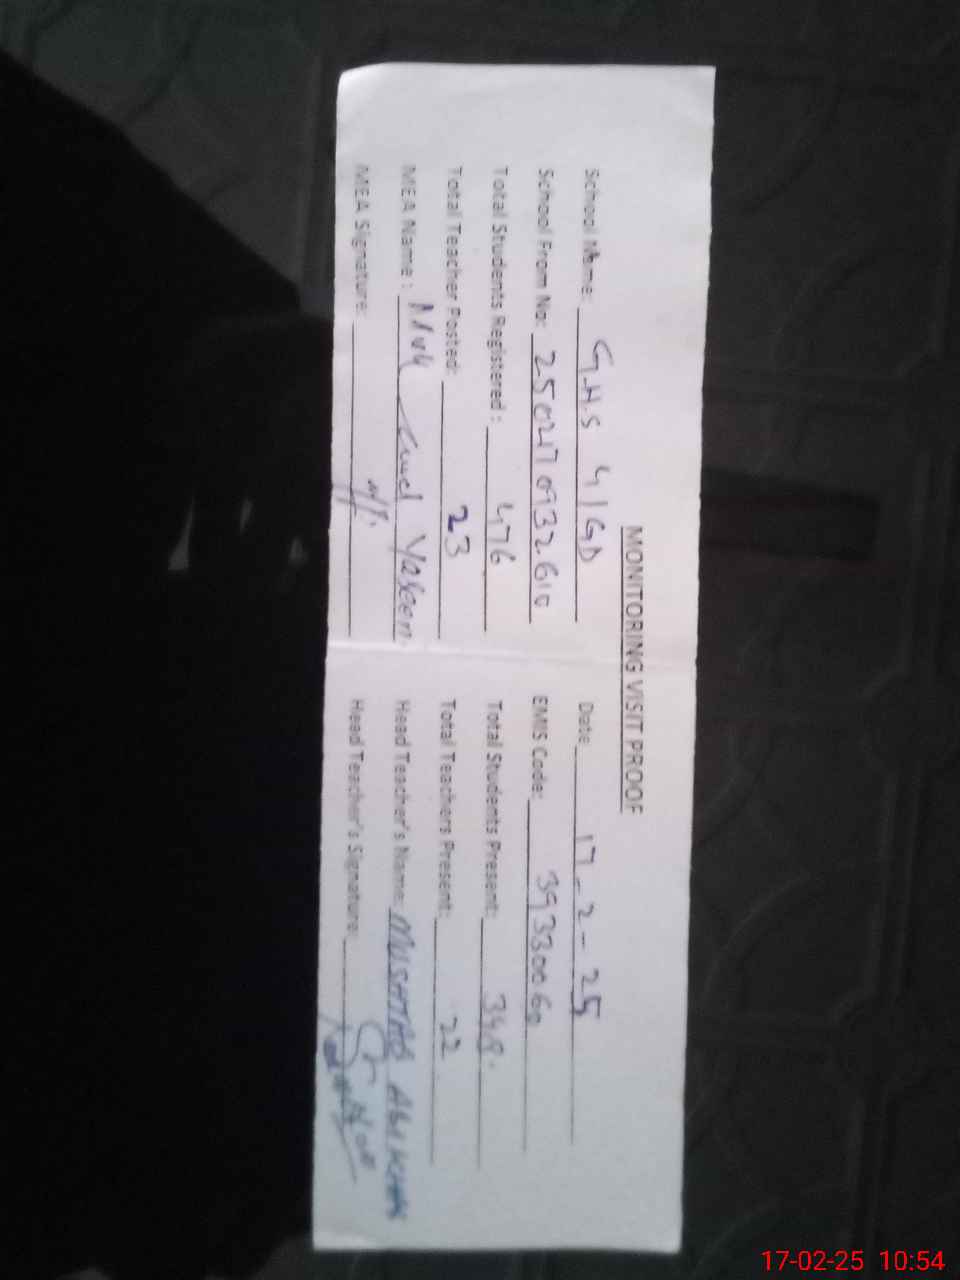 MONITORING VISIT PROOF
School Name: G.H.S 41GD Date 17-2-25
School From No: EMIS Code: 39330060
Total Students Registered: 476 Total Students Present: 348.
Total Teacher Posted: 23 Total Teachers Present: 22
MEA Name: Yaseen. Head Teacher's Name: MUSHTAQ
MEA Signature: Head Teacher's Signature:
17-02-25 10:54